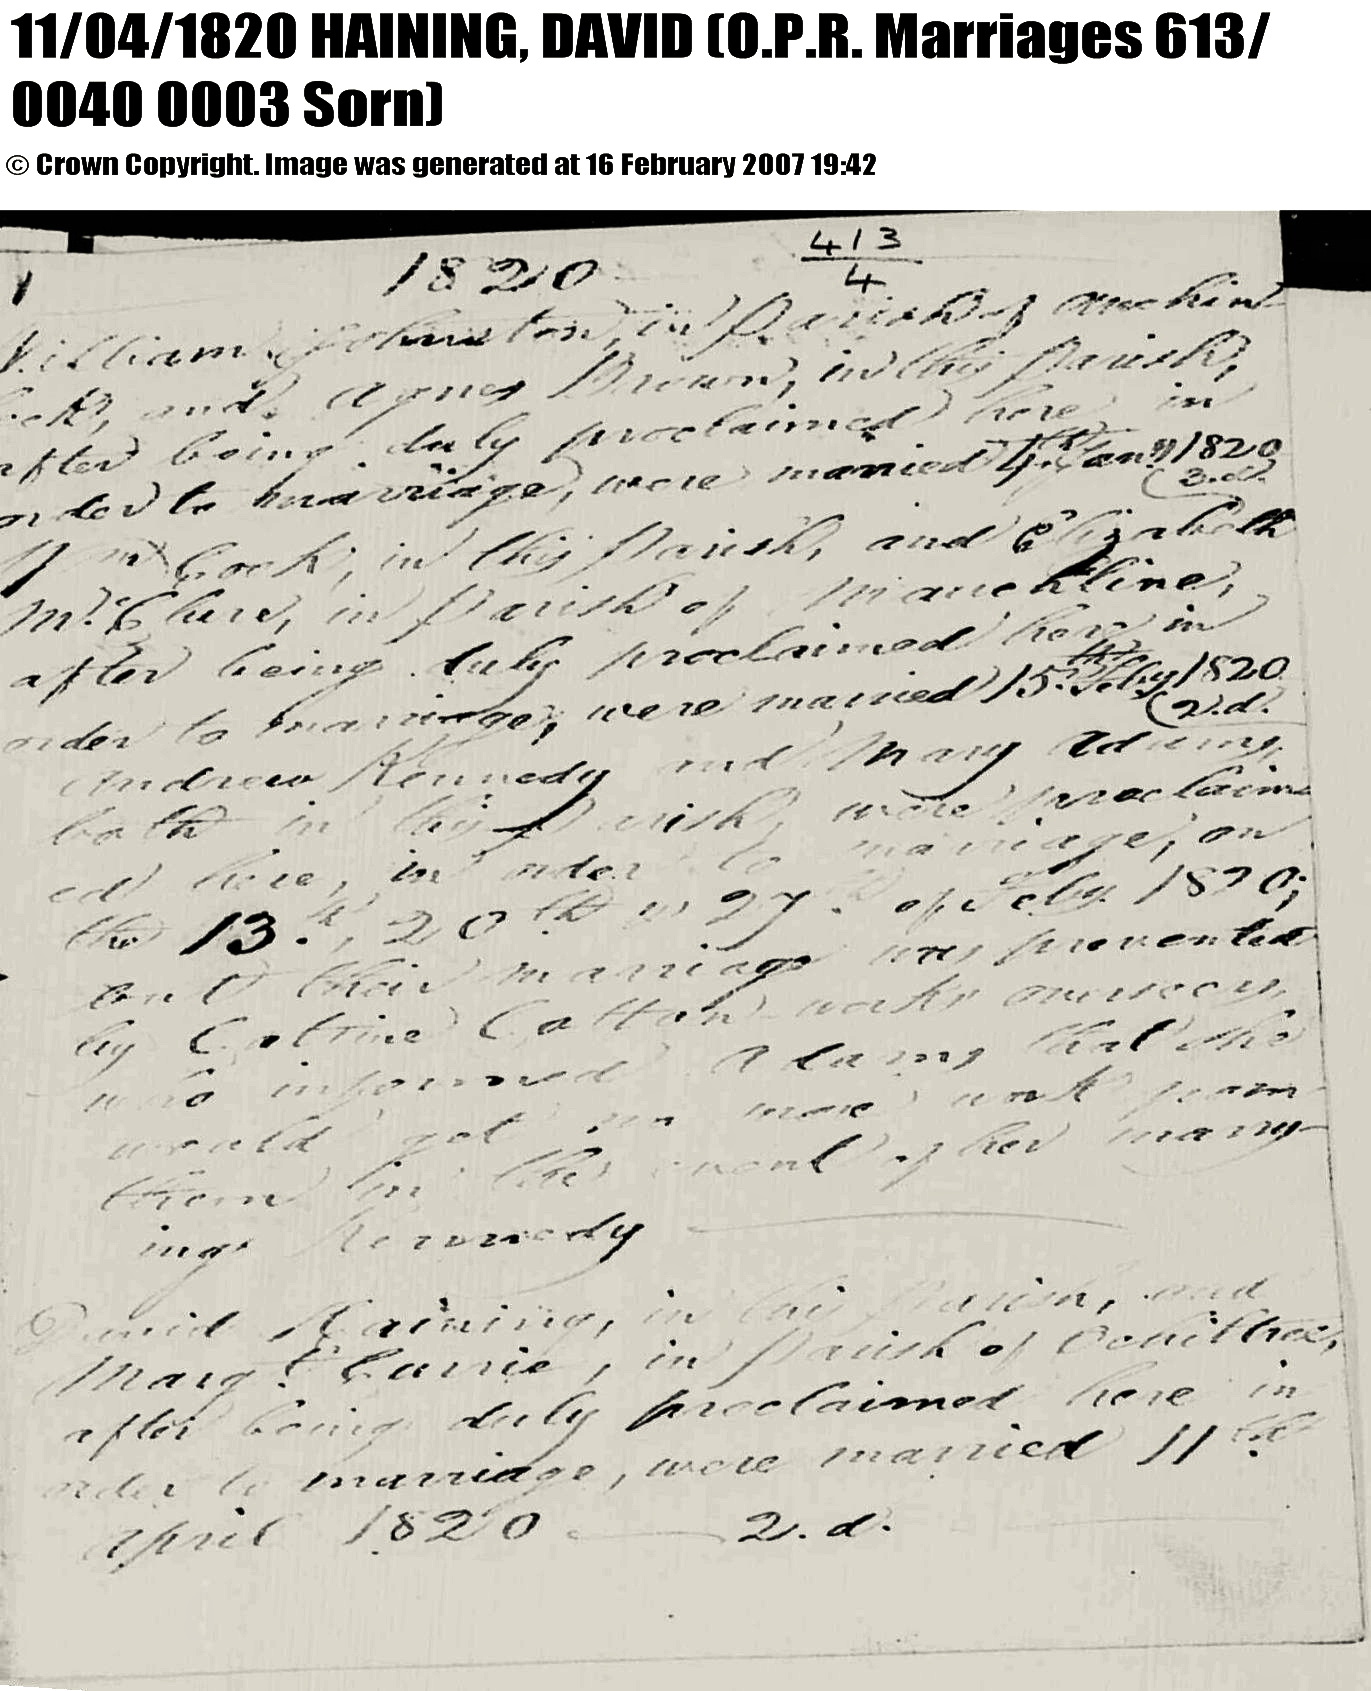 11/04/1820 HAINING, DAVID (O.P.R. Marriages 613/
0040 0003 Sorn)
© Crown Copyright. Image was generated at 16 February 2007 19:42
1820
413
4
William Johnston, in Parish of Auchin
leck, and Agnes Brown, in this Parish,
after being duly proclaimed here in
order to marriage, were married 4th Jany 1820
2.d.
Wm Cook, in this Parish, and Elizabeth
Mc.Clure, in Parish of Mauchline,
after being duly proclaimed here in
order to marriage, were married 15th Feby 1820
(2.d.
Andrew Kennedy and Mary Adams,
both in this Parish, were proclaim
ed here, in order to marriage, on
the 13th, 20th & 27th of Feby. 1820;
but their marriage was prevented
by Catrine Cotton works overseers,
who informed Adams that she
would get no more work from
them in the event of her marry-
ing Kennedy
David Haining, in this Parish, and
Margt Currie, in Parish of Ochiltree,
after being duly proclaimed here in
order to marriage, were married 11th
April 1820 2.d.